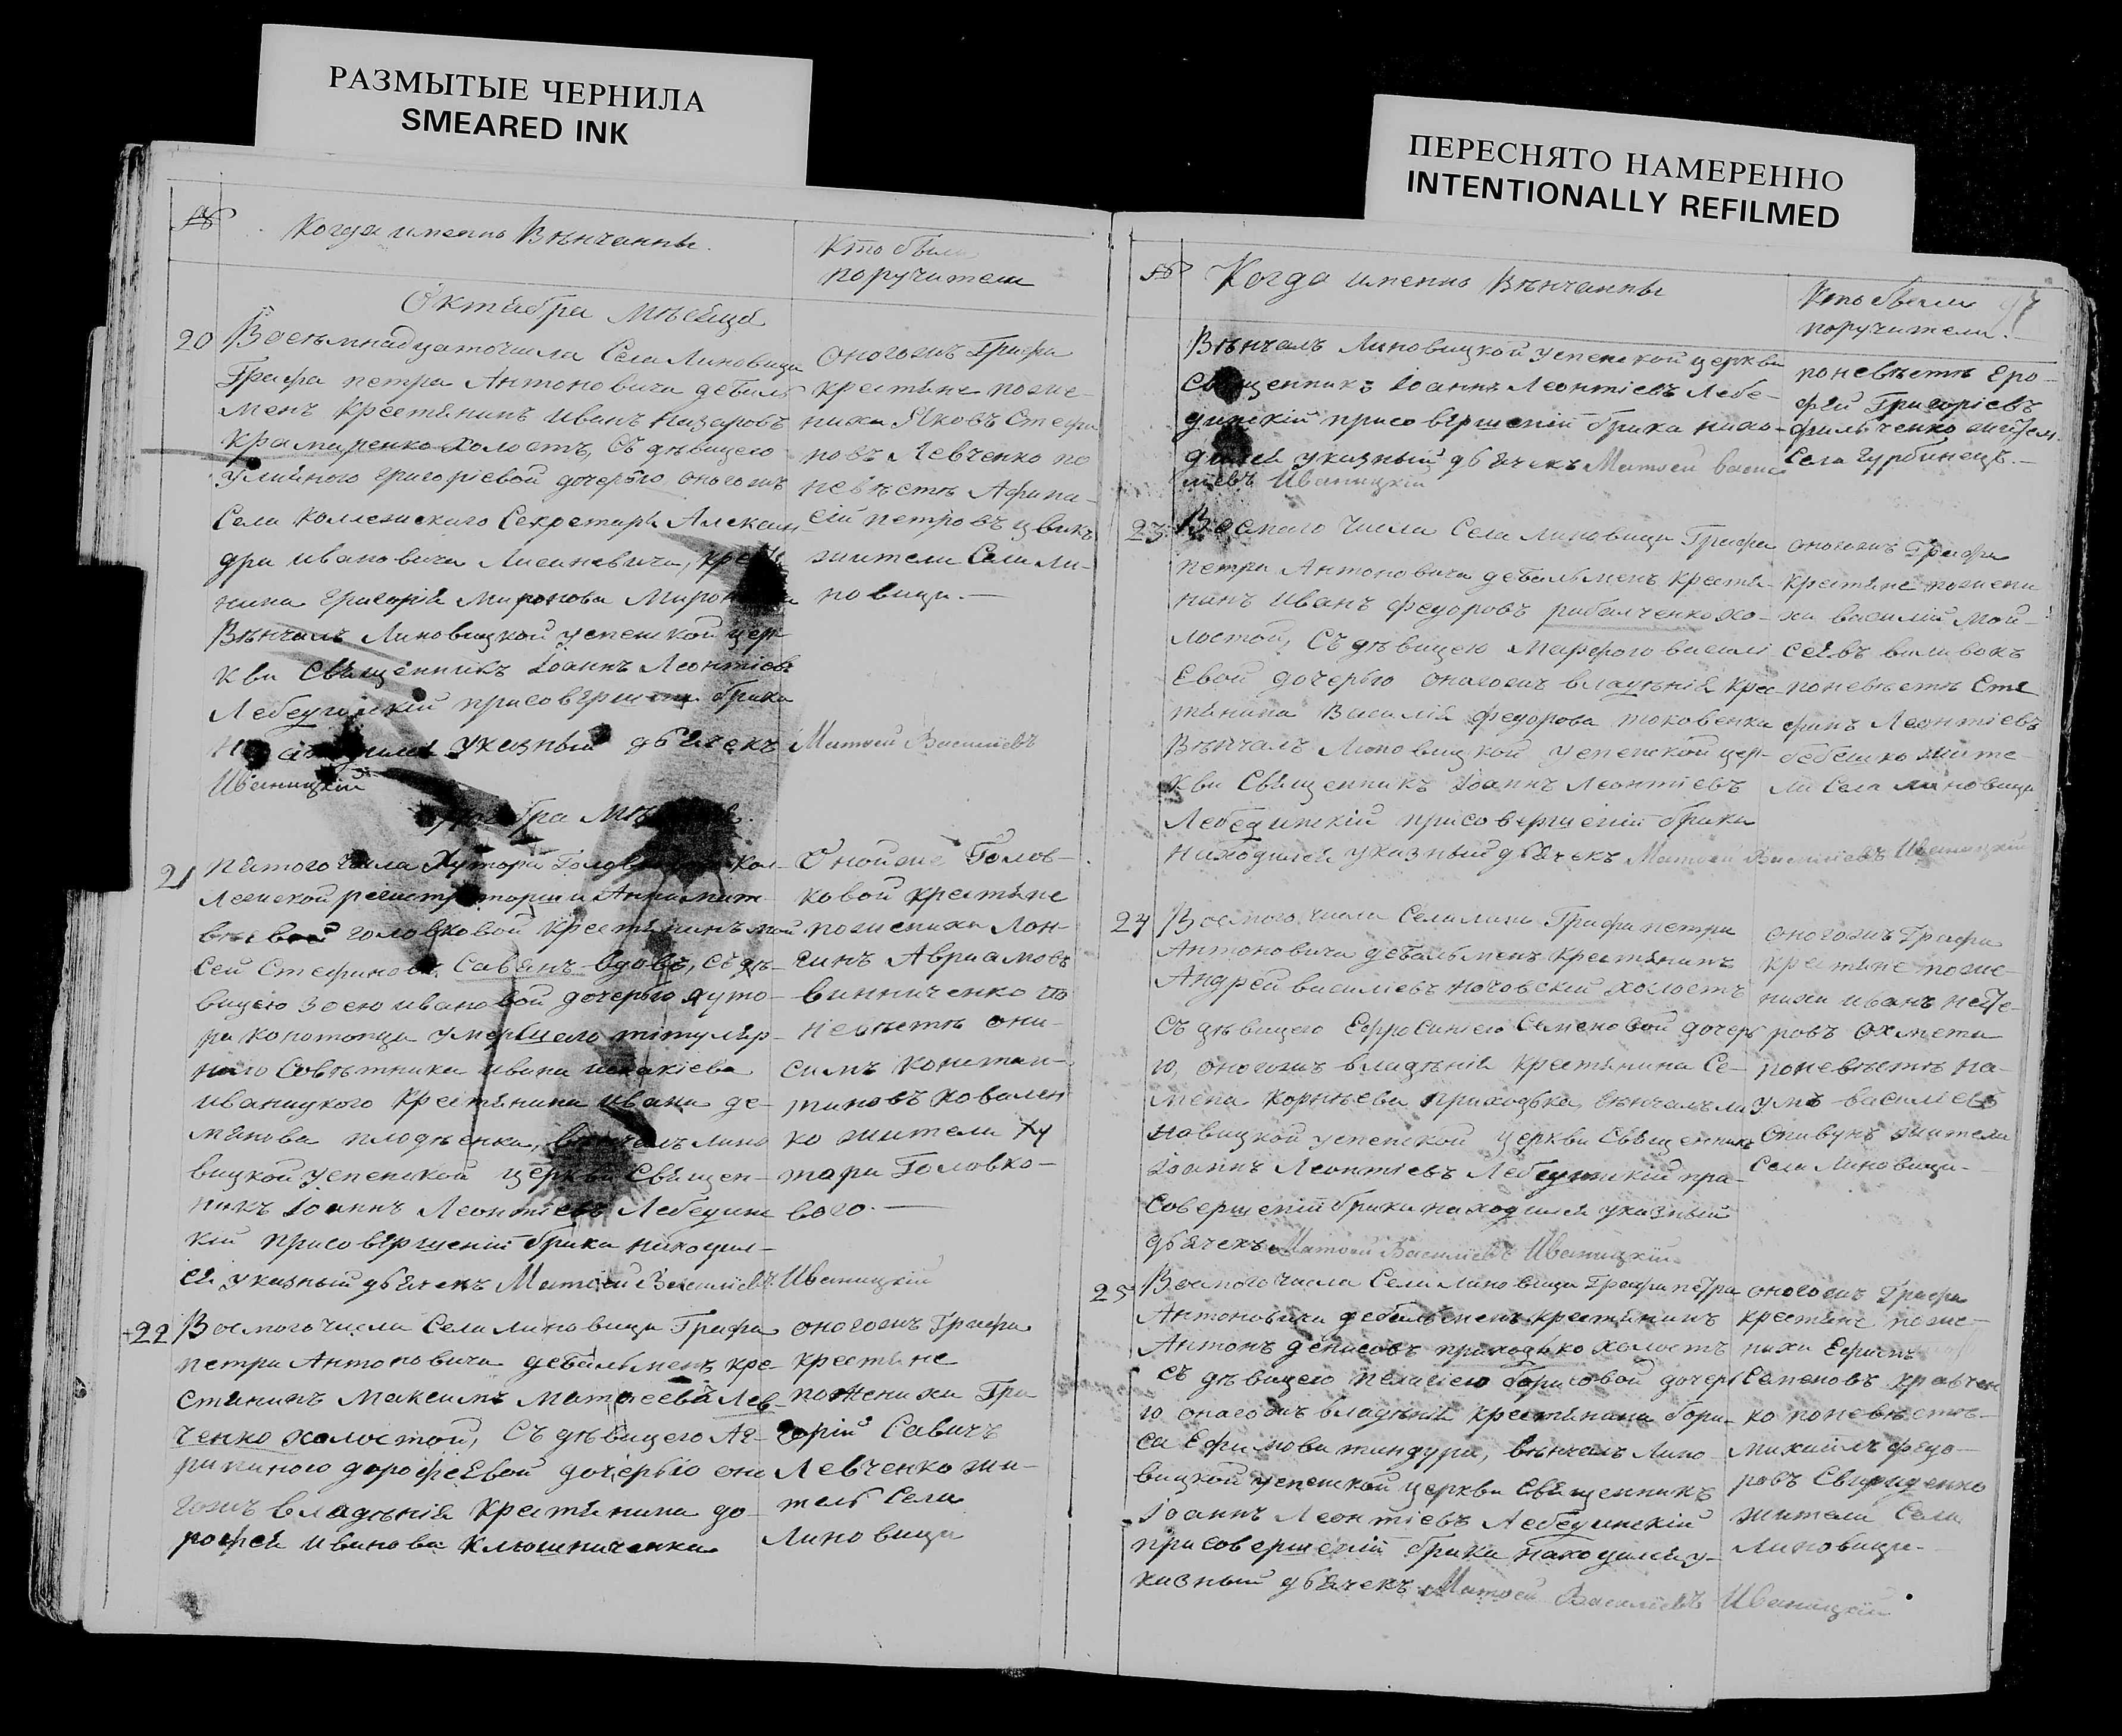 РАЗМЫТЫЕ ЧЕРНИЛА
SMEARED INK
ПЕРЕСНЯТО НАМЕРЕННО
INTENTIONALLY REFILMED
№ Когда именно Вѣнчанны
Кто были
поручители
Октября мѣсяца
20 Восемнадцатого числа Села Линовици
Графа петра Антоновича дебаль
менъ крестянинъ иванъ назаровъ
крамаренко холостъ, съ дѣвицею
улияною григоріевой дочерью оногожъ
Села коллежскаго Секретаря Алексан
дра ивановича
нина григорія миронова
Вѣнчалъ Линовицкой успенской цер-
кви Священникъ Іоаннъ Леонтіевъ
Лебединскій присовершеніи брака
указный дьячекъ Матвей Василіевъ
Иваницкій
оногожъ Графа
крестяне пожс-
ниха Яковъ Стефа
новъ Левченко по
невѣстѣ Афана-
сій петровъ цвикъ
жители Села ли-
новици.—
21 пятого числа Хутора
лежской
головковой крестянинъ мой
сей Стефановъ Савянъ вдовъ, съ дѣ-
вицею зоею ивановой дочерью хуто-
ра умершего титуляр-
ного Совѣтника ивана
иваницкого крестянина ивана де-
мянова лино
вицкой успенской церкви Священ-
никъ Іоаннъ Леонтіевъ Лебедин
кій присовершеніи брака находил-
ся указный дьячекъ Матвей Василіевъ Иваницкій
Оной же Голов-
ковой крестяне
пожениха Лон-
гинъ Авраамовъ
винниченко по
невѣстѣ они-
симъ констан-
тиновъ ковален
ко жители ху
тора Головко-
вого.—
22 Восмого числа Села линовици Графа
петра Антоновича дебальменъ кре-
стянинъ максимъ матвеевъ Лев-
ченко холостой, съ дѣвицею Аг-
рипиною дорофеевой дочерью оно
гожъ владѣнія крестянина до-
рофея иванова ключниченка
оногожъ Графа
крестяне
пожениха Гри
горій Савичъ
Левченко жи-
тель Села
Линовици
№ Когда именно Вѣнчанны
Кто были 97
поручители.
Вѣнчалъ Линовицкой успенской церкви
Священникъ Іоаннъ Леонтіевъ Лебе-
динскій присовершеніи брака нахо-
дился указный дьячекъ Матвей васи
ліевъ Иваницкій
поневѣстѣ Еро-
фей Григоріевъ
фильченко жител.
Села гурбинецъ.—
23 Восмаго числа Села линовици Графа
петра Антоновича дебальменъ крестя-
нинъ иванъ федоровъ рибалченко хо-
лостой, съ дѣвицею марфою василі
евой дочерью оногожъ владѣнія крес
тянина Василія федорова токовенка
Вѣнчалъ Линовицкой успенской цер-
кви Священникъ Іоаннъ Леонтіевъ
Лебединскій присовершеніи брака
находился указный дьячекъ Матвей Василіевъ Иваницкій
оногожъ Графа
крестяне пожени
ха василій мой-
сеевъ
поневѣстѣ Сте
фанъ Леонтіевъ
бебешко жите-
ли Села линовици
24 Восмого числа Села лино Графа петра
Антоновича дебальменъ крестянинъ
Андрей василіевъ ночовскій холостъ
съ дѣвицею Ефросиніею Семеновой дочерь
ю, оногожъ владѣнія крестянина Се-
мена корнѣева приходька, вѣнчалъ ли
новицкой успенской церкви Священникъ
Іоаннъ Леонтіевъ Лебединскій при-
совершеніи брака находился указный
дьячекъ Матвей Василіевъ Иваницкій
оногожъ Графа
крестяне пожс-
ниха иванъ
ровъ
поневѣстѣ на-
умъ василіевъ
жители
села Линовици-
25 Восмого числа Села лино вици Графа петра
Антоновича дебальменъ крестянинъ
Антонъ денисовъ приходько холостъ
съ дѣвицею пелагіею борисовой дочерь
ю оногожъ владѣнія крестянина бори-
са Ефимова тиндури, вѣнчалъ Лино-
вицкой успенской церкви Священникъ
Іоаннъ Леонтіевъ Лебединскій
присовершеніи брака находился у-
казный дьячекъ Матвей Василіевъ Иваницкій
оногожъ Графа
крестяне пожс-
ниха Ефимъ
Семеновъ кравчен
ко поневѣстѣ-
михаилъ федо-
ровъ Свириденко
жители Села
Линовици-